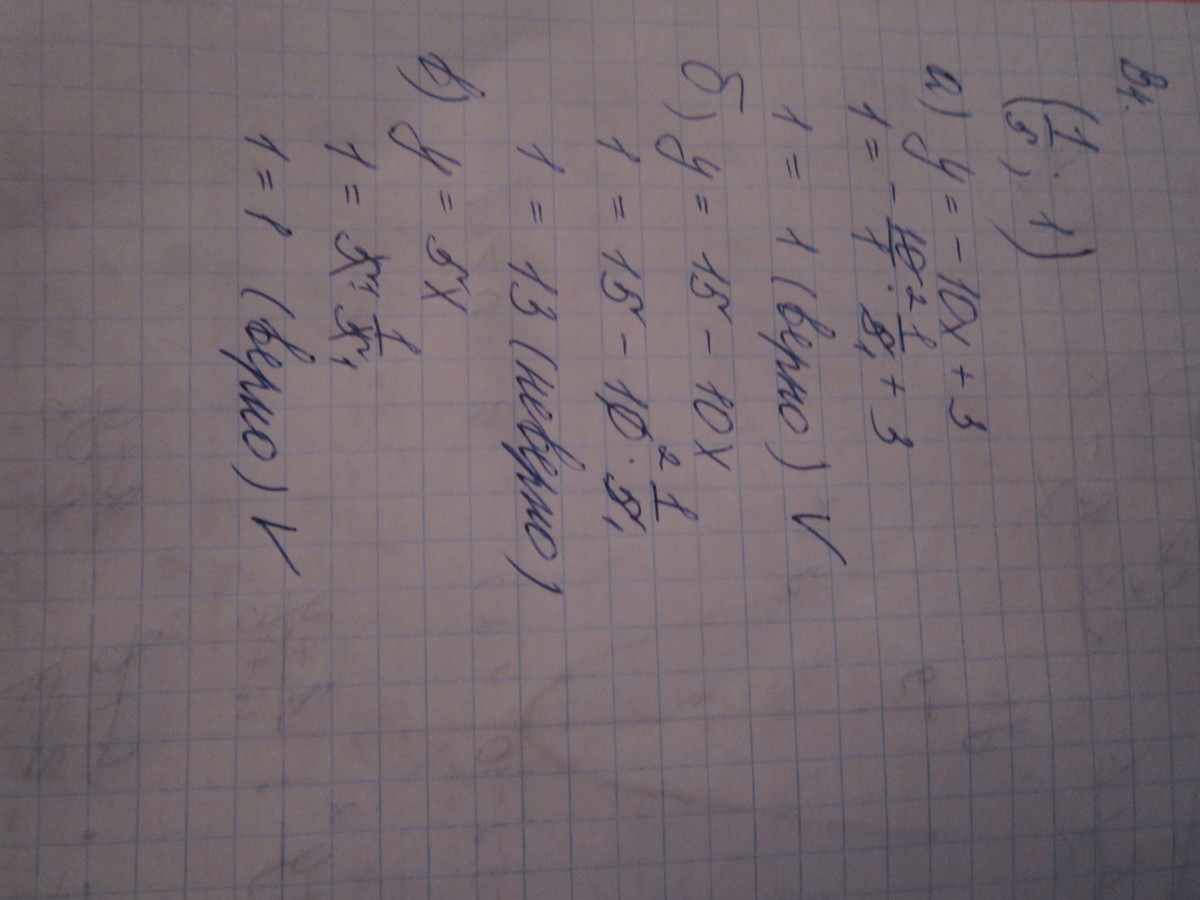 В4.
(1/5; 1)
а) y = -10x + 3
1 = - 10²/1 · 1/5₁ + 3
1 = 1 (верно) V
б) y = 15 - 10x
1 = 15 - 10² · 1/5₁
1 = 13 (неверно)
в) y = 5x
1 = 5¹ · 1/5₁
1 = 1 (верно) V